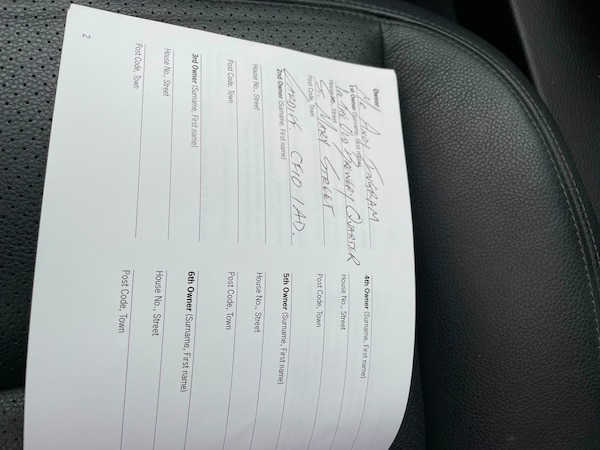 Owner
1st Owner (Surname, First name)
Mr Andy Ingram
House No., Street
In the Old Brewery Quarter
Post Code, Town
St Mary Street
2nd Owner (Surname, First name)
Cardiff CF10 1AD.
House No., Street
Post Code, Town
3rd Owner (Surname, First name)
House No., Street
Post Code, Town
2
4th Owner (Surname, First name)
House No., Street
Post Code, Town
5th Owner (Surname, First name)
House No., Street
Post Code, Town
6th Owner (Surname, First name)
House No., Street
Post Code, Town